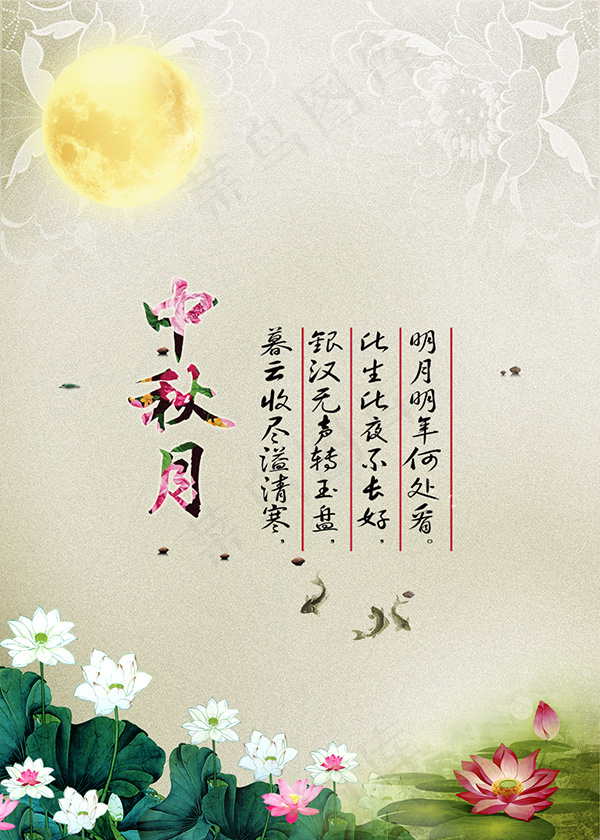 中秋月
暮云收尽溢清寒，
銀汉无声转玉盘，
此生此夜不长好，
明月明年何处看。
菜鸟图库